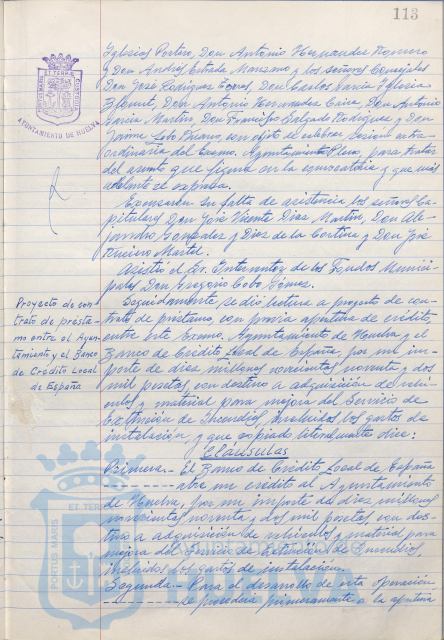 113
PORTUS MARIS ET TERRAE CUSTODIA
AYUNTAMIENTO DE HUELVA
Iglesias Portero, Don Antonio Hernandez Romero
y Don Andrés Estrada Manzano y los señores Concejales
Don José Rodriguez Don Carlos García Iglesias
Don Antonio Hernandez Don Antonio
García Martín Don Francisco Salgado Rodriguez y Don
Jaime Soto con objeto de celebrar sesión extra-
ordinaria del Excmo. Ayuntamiento Pleno, para tratar
del asunto que figura en la convocatoria y que más
adelante se expresa.
Excusaron su falta de asistencia los señores Ca-
pitulares Don José Vicente Díaz Martín, Don Ale-
jandro Gonzalez y Diez de la Cortina y Don José
Martel.
Asistió el Sr. Interventor de los Fondos Munici-
pales Don Gregorio Cobo Gomez.
Proyecto de con-
trato de présta-
mo entre el Ayun-
tamiento y el Banco
de Crédito Local
de España
Seguidamente se dió lectura a proyecto de con-
trato de préstamo, con previa apertura de crédito,
entre este Excmo. Ayuntamiento de Huelva y el
Banco de Crédito Local de España, por un im-
porte de diez millones novecientas noventa y dos
mil pesetas con destino a adquisición de vehí-
culos y material para mejora del Servicio de
Extinción de Incendios, incluidos los gastos de
instalación, y que copiado literalmente dice:
Cláusulas
Primera.- El Banco de Crédito Local de España
abre un crédito al Ayuntamiento
de Huelva, por un importe de diez millones
novecientas noventa y dos mil pesetas, con des-
tino a adquisición de vehículos y material para
mejora del Servicio de Extinción de Incendios,
incluidos los gastos de instalación.
Segunda.- Para el desarrollo de esta operación
se procederá primeramente a la apertura
PORTUS MARIS ET TERRAE